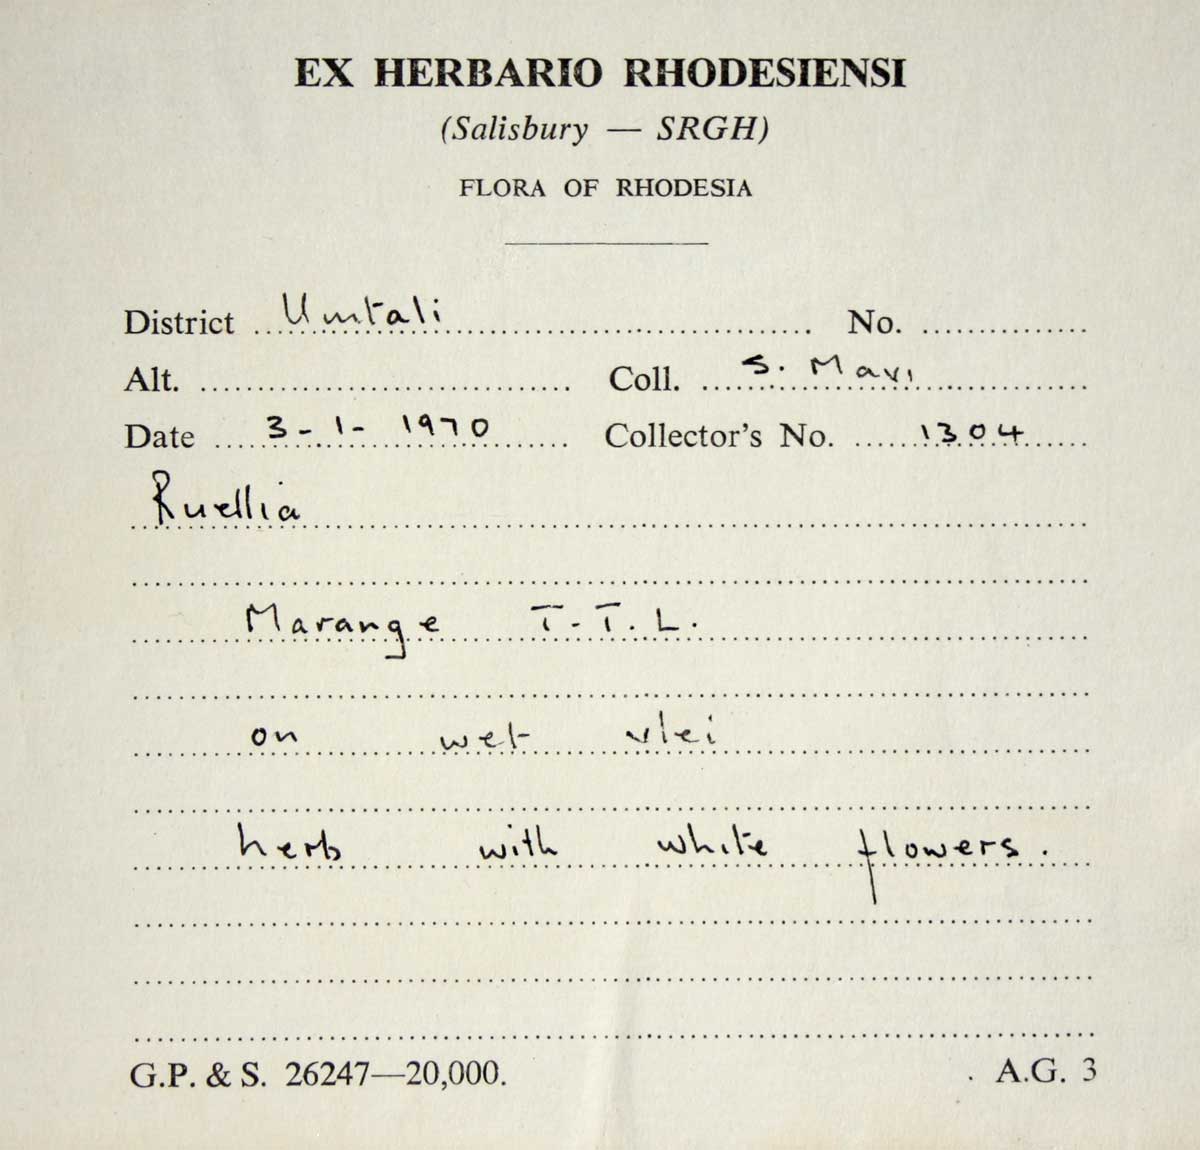 EX HERBARIO RHODESIENSI
(Salisbury — SRGH)
FLORA OF RHODESIA
District Umtali No.
Alt. Coll. S. Mavi
Date 3-1-1970 Collector's No. 1304
Ruellia
Marange T.T.L.
on wet vlei
herb with white flowers.
G.P. & S. 26247—20,000. A.G. 3